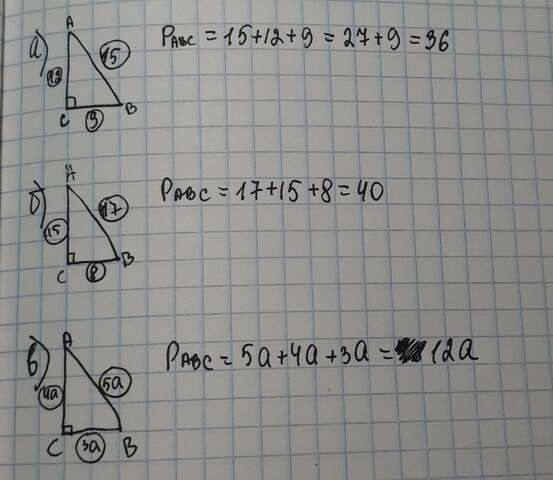 а)
A
15
12
C
9
B
PABC = 15+12+9 = 27+9 = 36
б)
A
17
15
C
8
B
PABC = 17+15+8 = 40
в)
A
5a
4a
C
3a
B
PABC = 5a+4a+3a = 12a